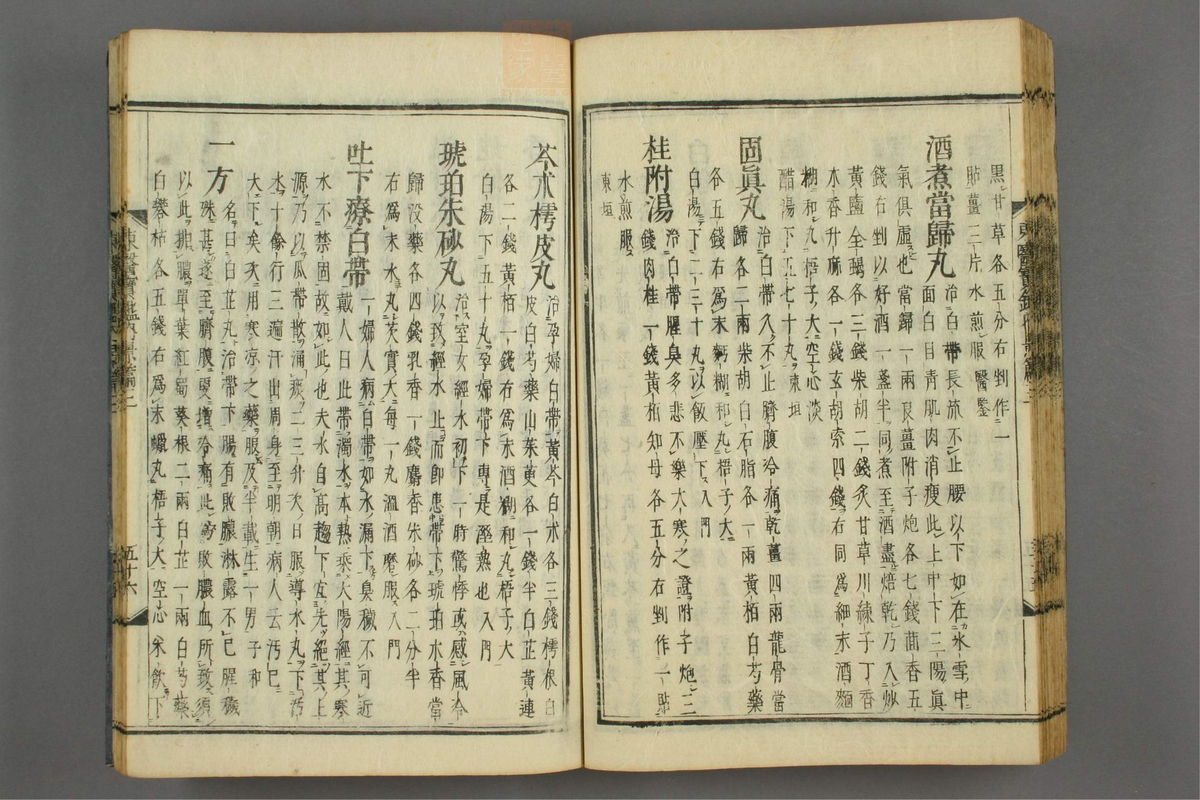 黑甘草各五分右剉作一
貼薑三片水煎服醫鑒
酒煮當歸丸治白帶長流不止腰以下如在氷雪中
面白目青肌肉消瘦此上中下三陽眞
氣俱虛也當歸一兩良薑附子炮各七錢茴香五
錢右剉以好酒一盞半同煮至酒盡焙乾乃入炒
黃鹽全蝎各三錢柴胡二錢炙甘草川練子丁香
木香升麻各一錢玄胡索四錢右同爲細末酒麵
糊和丸梧子大空心淡
醋湯下五七十丸東垣
固眞丸治白帶久不止臍腹冷痛乾薑四兩龍骨當
歸各二兩柴胡白石脂各一兩黃栢白芍藥
各五錢右爲末麪糊和丸梧子大
白湯下二三十丸以飯壓下入門
桂附湯治白帶腥臭多悲不樂大寒之證附子炮三
錢肉桂一錢黃栢知母各五分右剉作一貼
水煎服
東垣
芩朮樗皮丸治孕婦白帶黃芩白朮各三錢樗根白
皮白芍藥山茱萸各一錢半白芷黃連
各二錢黃栢一錢右爲末酒糊和丸梧子大
白湯下五十丸孕婦帶下專是濕熱也入門
琥珀朱砂丸治室女經水初下一時驚悸或感風冷
以致經水止而卽患帶下琥珀木香當
歸沒藥各四錢乳香一錢麝香朱砂各二分半
右爲末水丸芡實大每一丸溫酒磨服入門
吐下療白帶一婦人病白帶如水漏下臭穢不可近
戴人曰此帶濁水本熱乘大陽經其寒
水不禁固故如此也夫水自高趨下宜先絕其上
源乃以瓜帶散涌痰二三升次日服導水丸下汚
水十餘行三遍汗出周身至明朝病人云汚已
大下矣次用寒凉之藥服及半載生一男子和
一方名曰白芷丸治帶下腸有敗膿淋露不已腥穢
殊甚遂至臍腹更增冷痛此爲敗膿血所致須
以此排膿單葉紅蜀葵根二兩白芷一兩白芍藥
白礬枯各五錢右爲末蠟丸梧子大空心米飮下
東醫寶鑑內景篇三
五十六